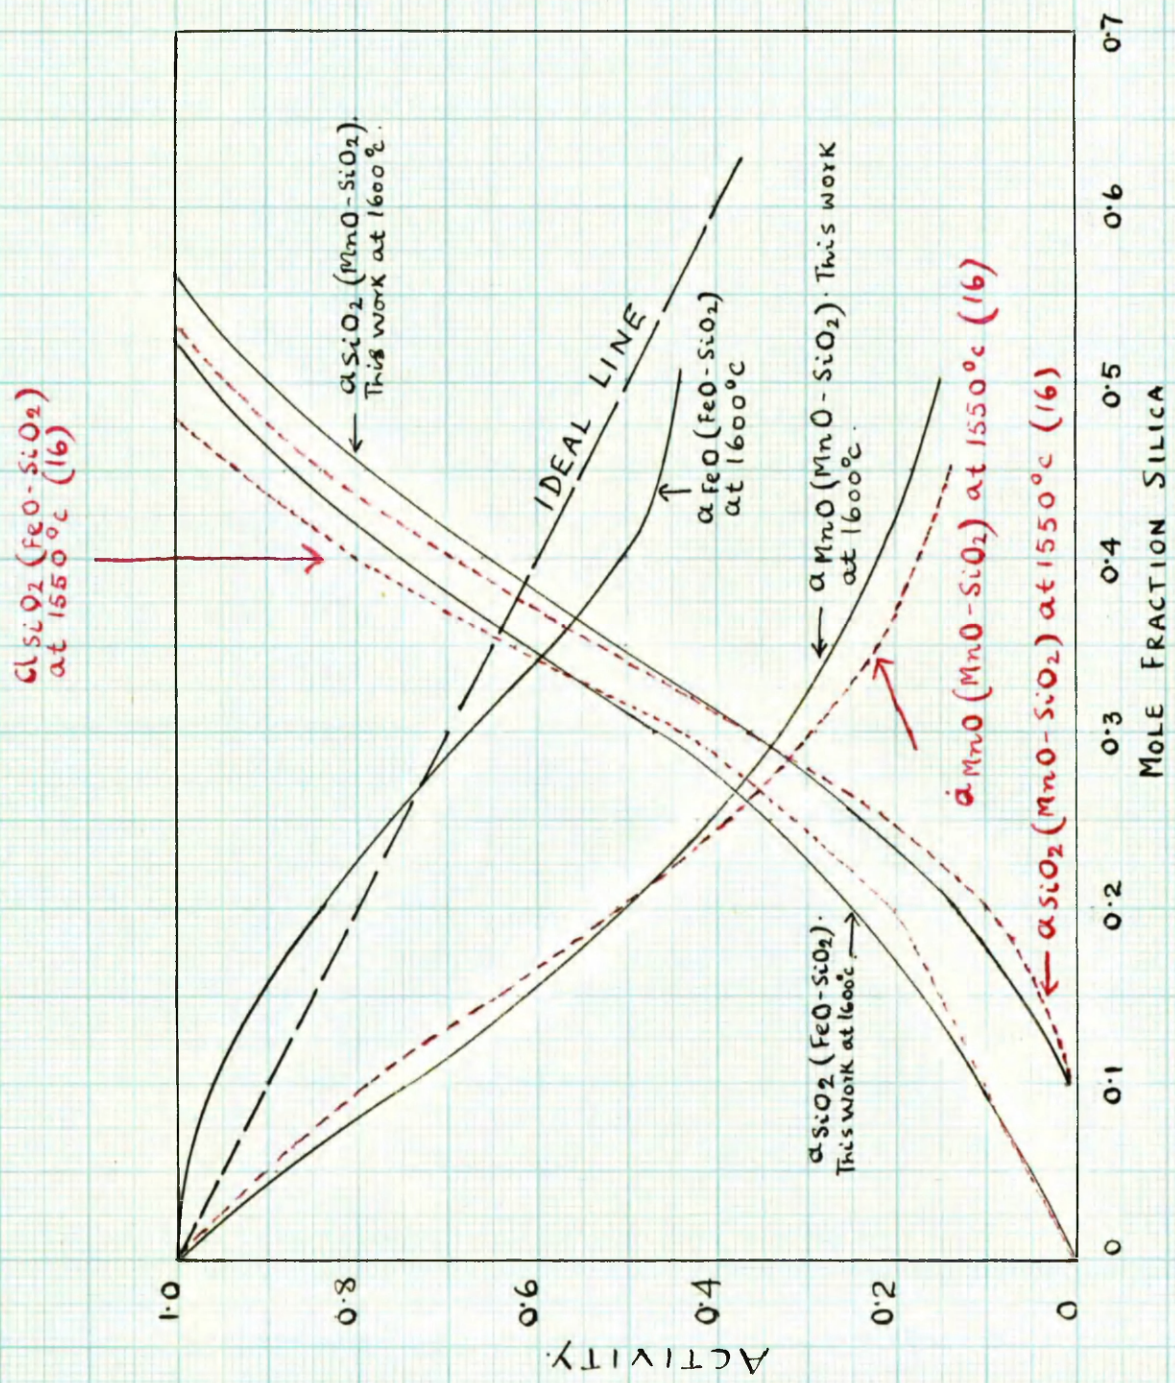 aSiO2 (FeO-SiO2)
at 1550°C (16)
aSiO2 (MnO-SiO2).
This work at 1600°C.
IDEAL LINE
a FeO (FeO-SiO2)
at 1600°C
a MnO (MnO-SiO2). This work
at 1600°C.
aMnO (MnO-SiO2) at 1550°C (16)
aSiO2 (MnO-SiO2) at 1550°C (16)
aSiO2 (FeO-SiO2).
This work at 1600°C.
ACTIVITY.
1.0
0.8
0.6
0.4
0.2
0
0
0.1
0.2
0.3
0.4
0.5
0.6
0.7
MOLE FRACTION SILICA